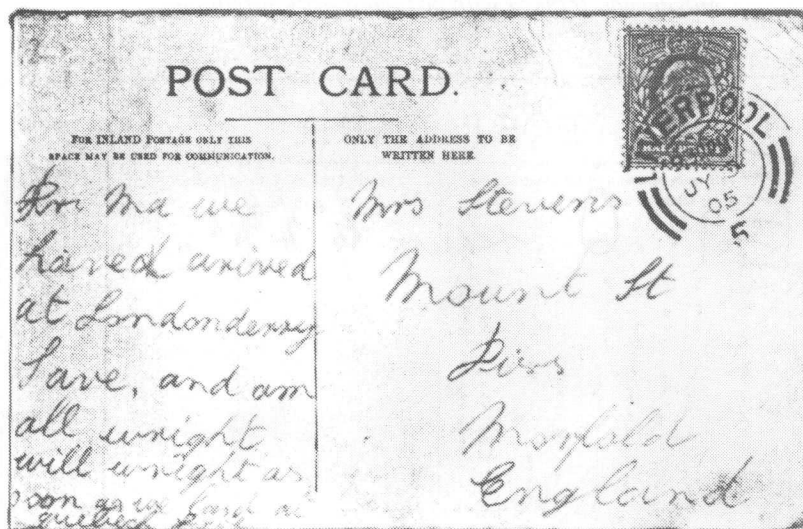 POST CARD.
FOR INLAND POSTAGE ONLY THIS
SPACE MAY BE USED FOR COMMUNICATION.
ONLY THE ADDRESS TO BE
WRITTEN HERE.
LIVERPOOL
JY
05
5
Ma we
haved arived
at Londonderry
Save, and am
all wright
will wright as
soon as we land at
Quebec
Mrs Stevens
Mount St
Diss
Norfold
England